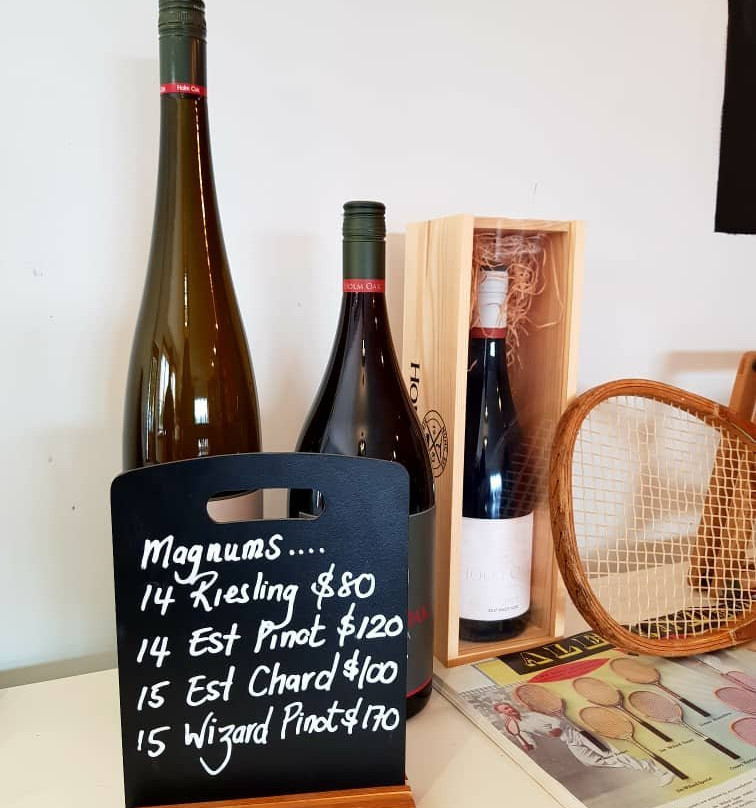 Holm Oak
HOLM OAK
Magnums....
14 Riesling $80
14 Est Pinot $120
15 Est Chard $100
15 Wizard Pinot $170
HOLM OAK